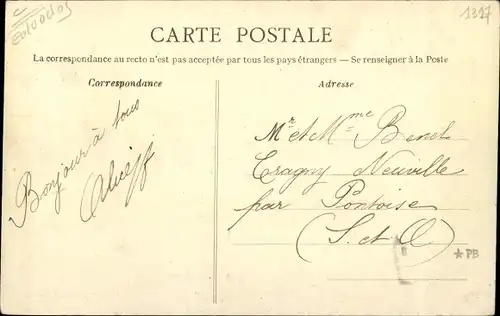 1317
CARTE POSTALE
La correspondance au recto n'est pas acceptée par tous les pays étrangers — Se renseigner à la Poste
Correspondance
Bonjour à tous
Adresse
Mr et Mme
Eragny Neuville
par Pontoise
(S. et O)
*PB